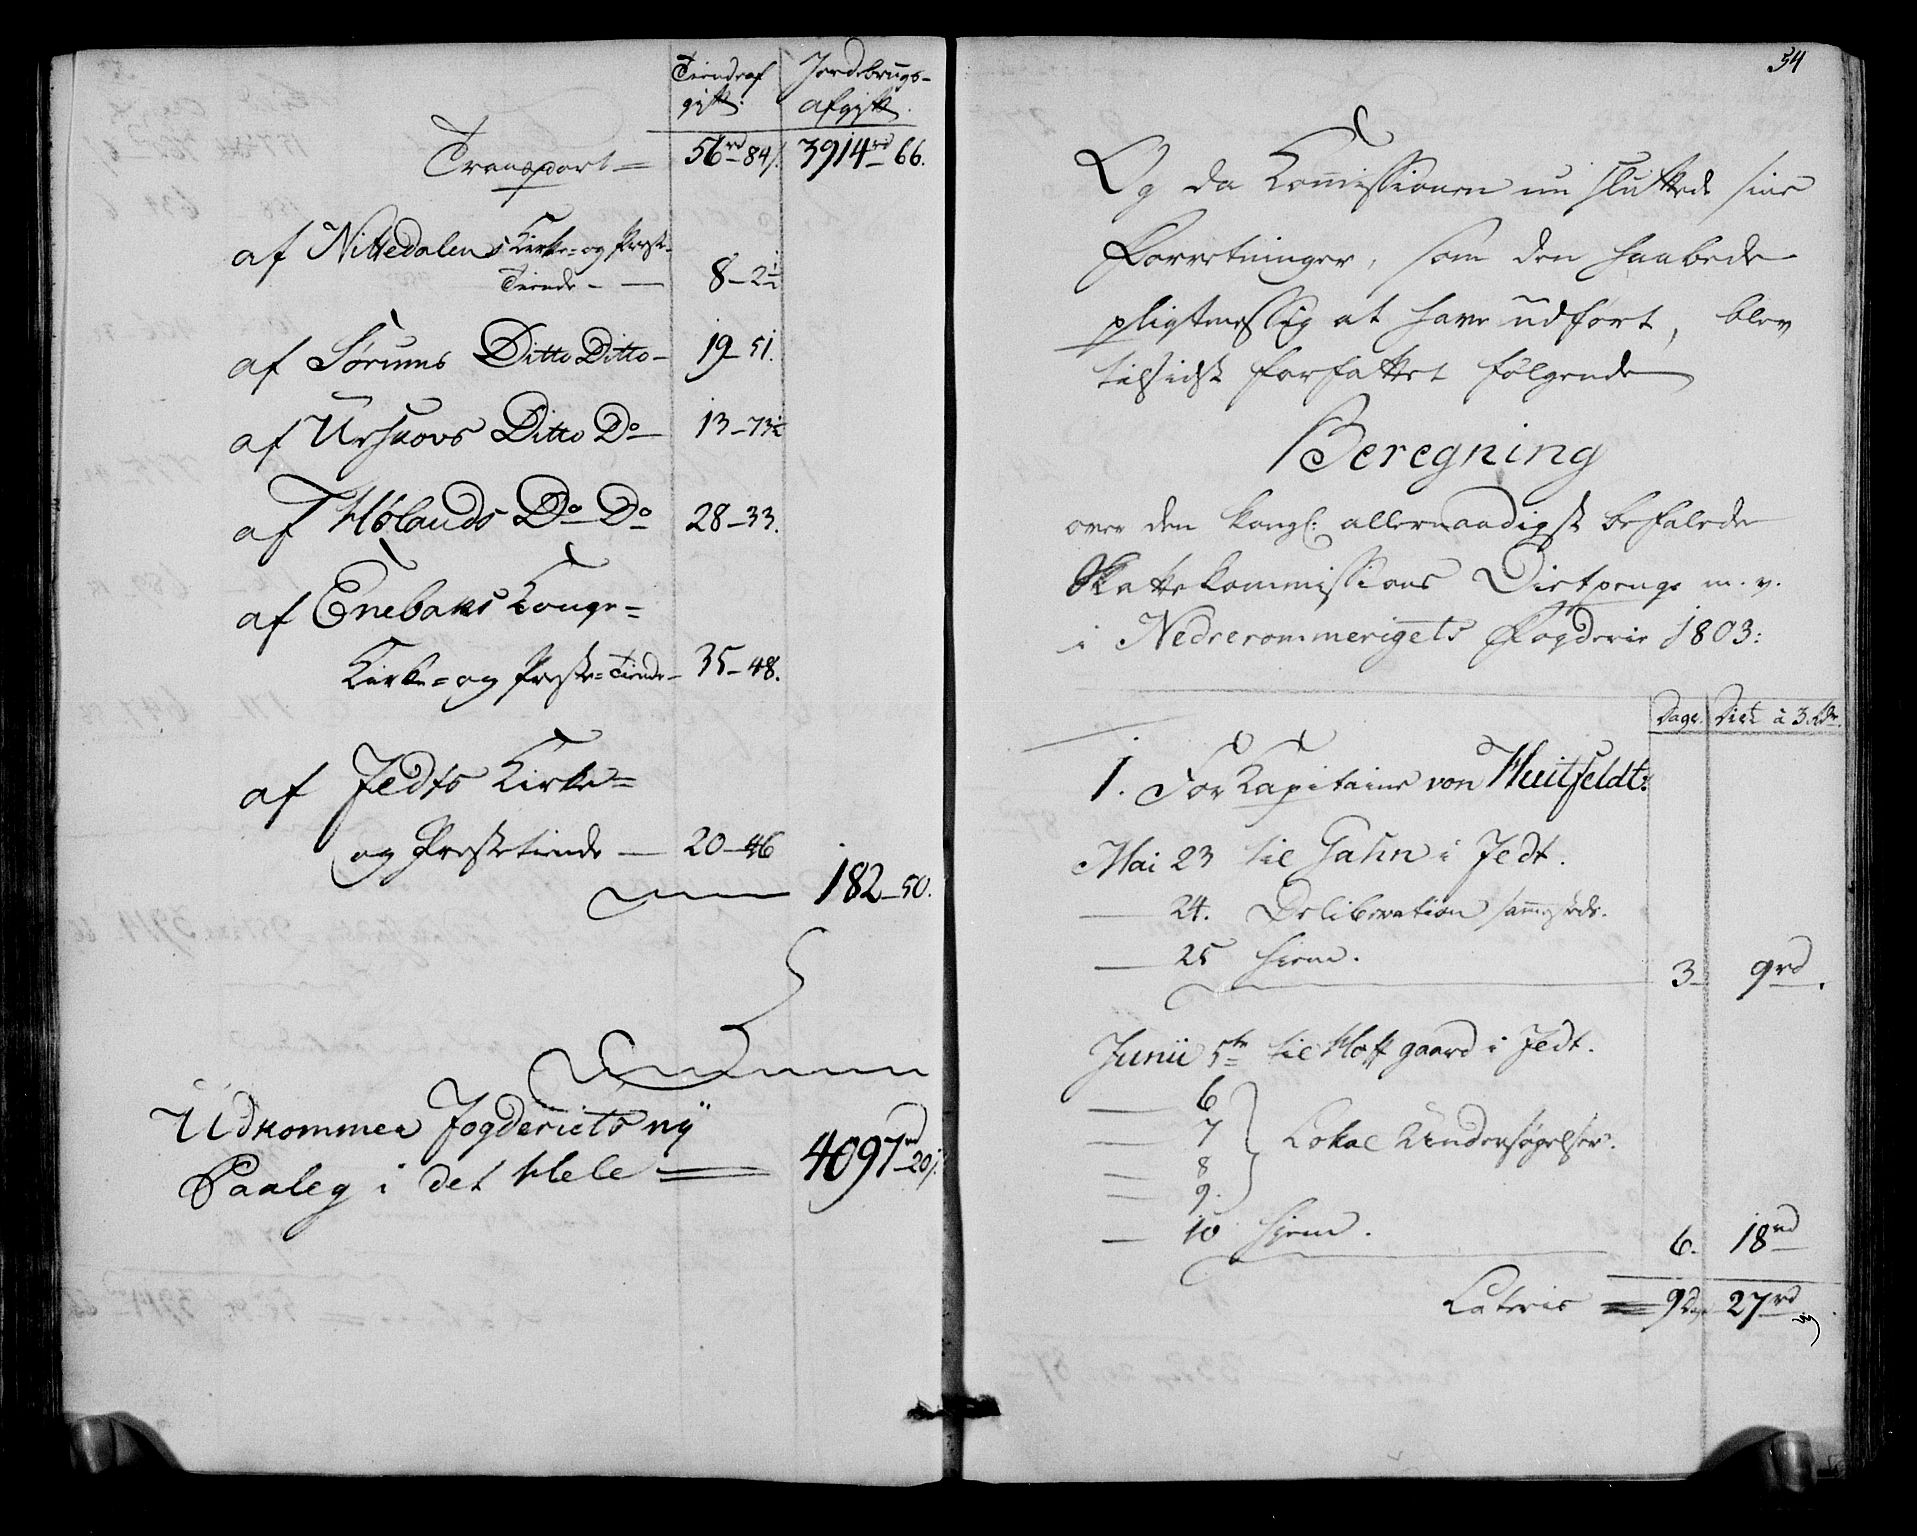 Tiendeaf Jordebrugs-
gift. afgift.
Transport = 56rd 84s. 3914rd 66.
af Nittedalens Kirke- og Præste-
Tiende - — 8 - 2½
af Sørums Ditto Ditto - 19 - 51.
af Urskovs Ditto Do — 13 - 73½
af Hølands Do Do 28 - 33.
af Enebaks Konge=
Kirke= og Præste= Tiende - 35 - 48.
af Fedts Kirke=
og Præstetiende — 20 - 46
182 - 50.
Udkommer Fogderiets ny
Paaleg i det Hele = 4097rd 20s.
54
Og da Kommissionen nu sluttede sine
Forretninger, som den haabede
pligtmessig at have udført, blev
tilsidst forfattet følgende
Beregning
over den kongl: allernaadigst befalede
Skattekommissions Dietpenge m. v.
i Nedreromerigets Fogderie 1803:
Dage. Diet à 3 Rdr.
1. For Kapitaine von Huitfeldt:
Mai 23 til Gahn i Fedt.
— 24. Deliberation sammesteds.
— 25 hiem.
3 9rd.
Junii 5te til Hoff gaard i Fedt.
— 6
— 7 Lokal Undersøgelser.
— 8
— 9.
— 10 hjem.
6. 18rd
Lateris = 9 D. 27rd